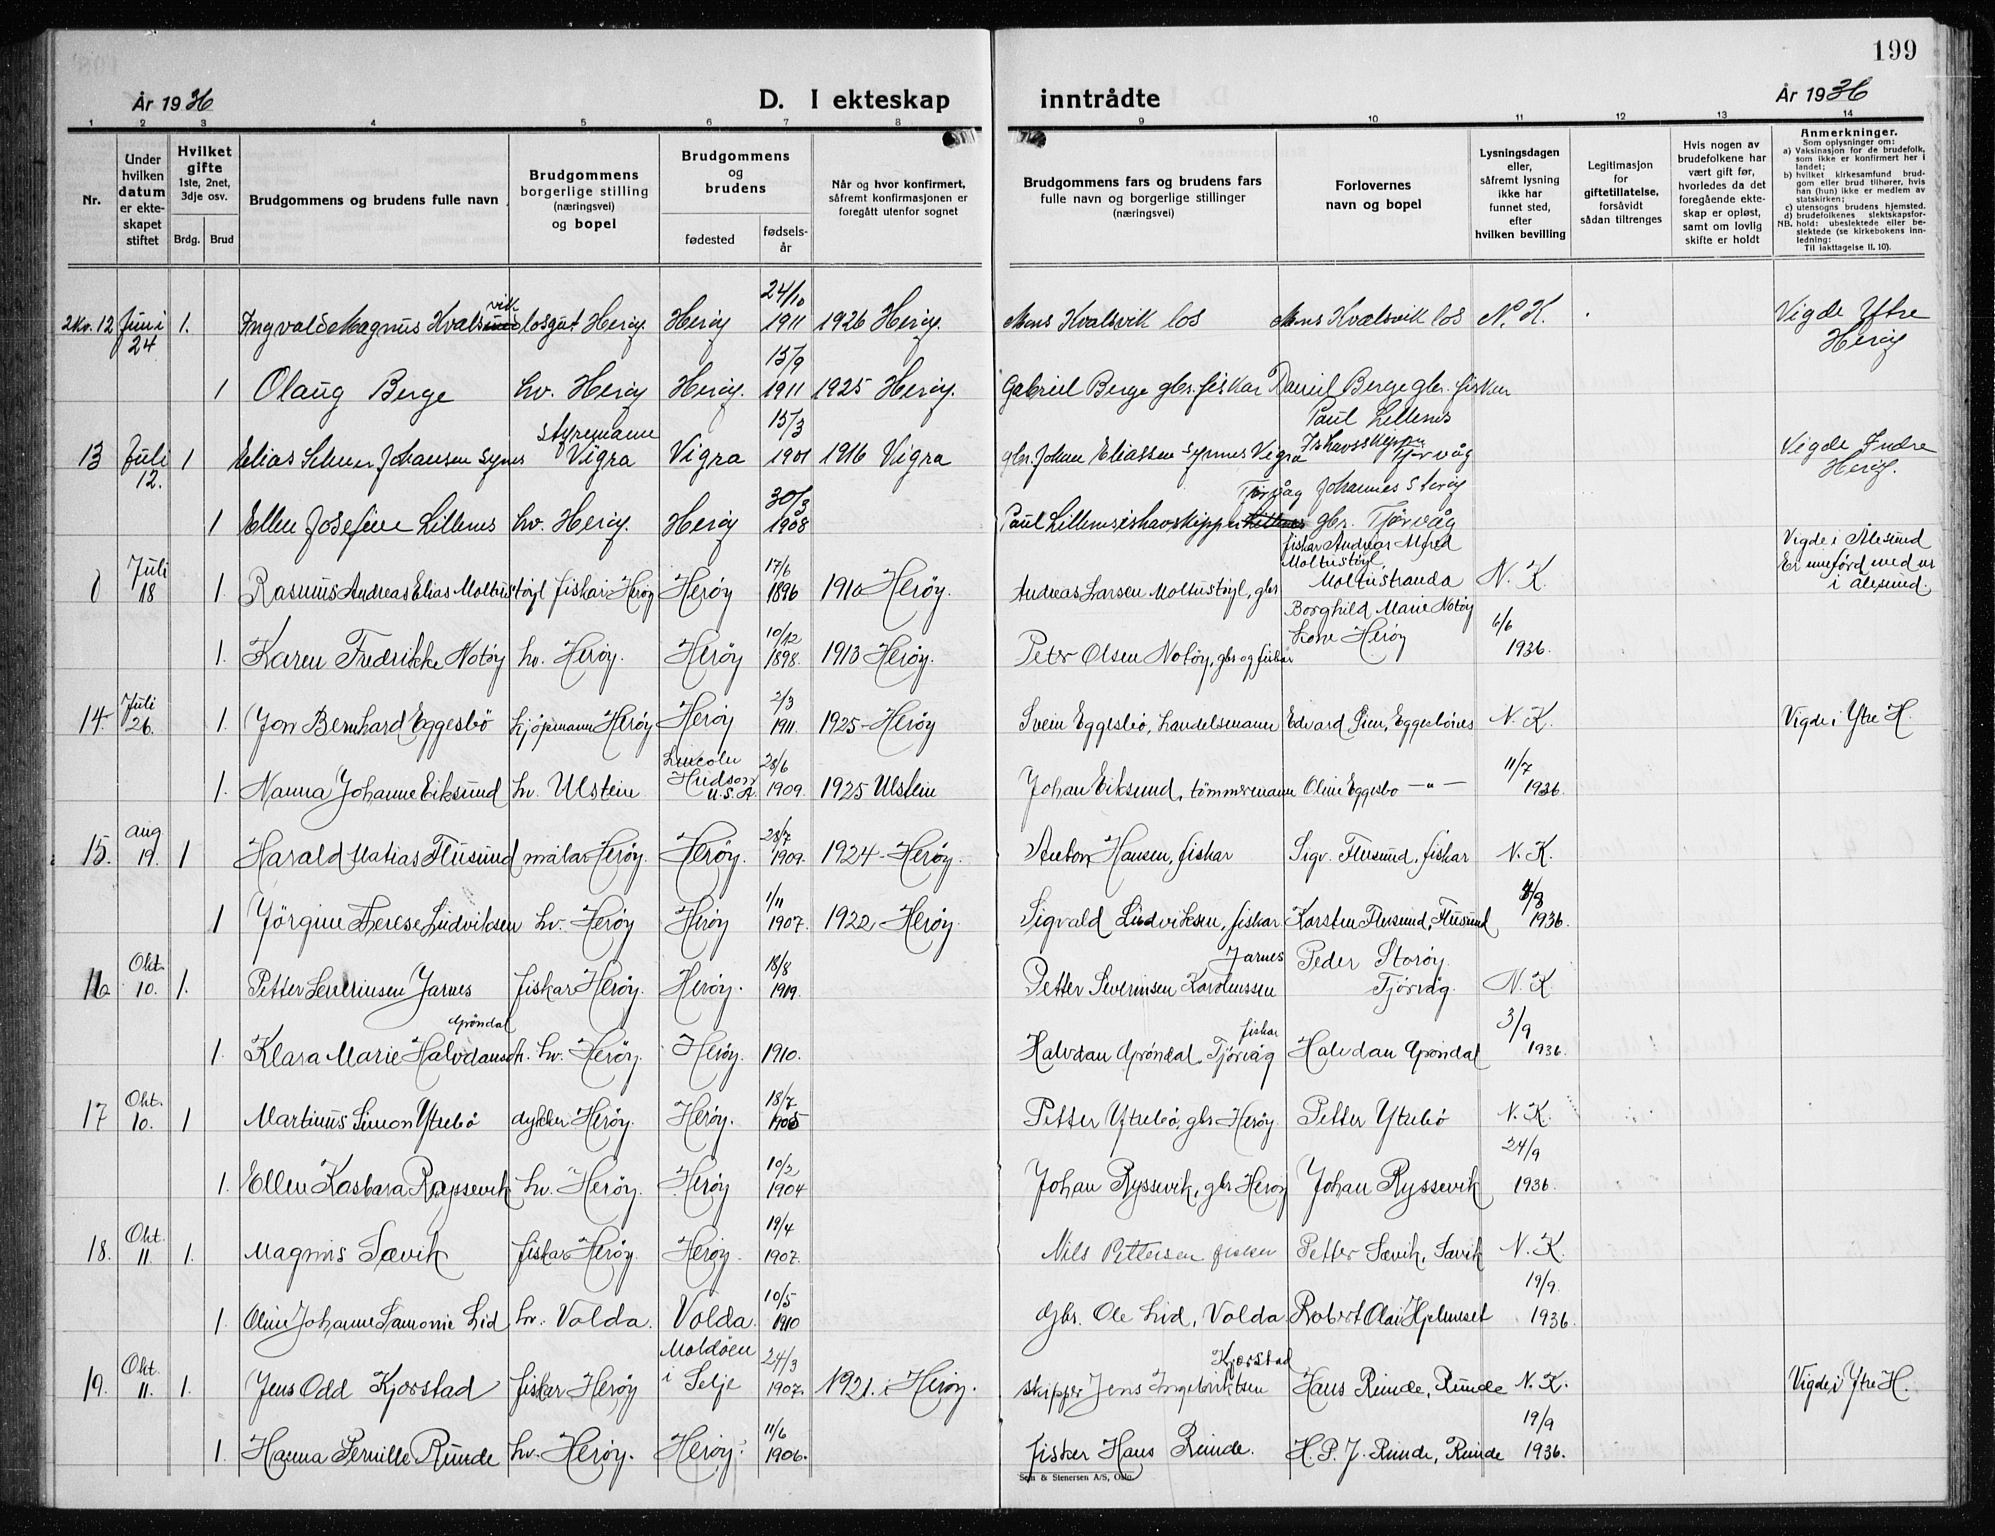 199
År 1936
D. I ekteskap inntrådte
År 1936
1 2 3 4 5 6 7 8 9 10 11 12 13 14
Nr.
Under hvilken datum er ekteskapet stiftet
Hvilket gifte 1ste, 2net, 3dje osv.
Brdg. Brud
Brudgommens og brudens fulle navn
Brudgommens borgerlige stilling (næringsvei) og bopel
Brudgommens og brudens
fødested
fødselsår
Når og hvor konfirmert, såfremt konfirmasjonen er foregått utenfor sognet
Brudgommens fars og brudens fars fulle navn og borgerlige stillinger (næringsvei)
Forlovernes navn og bopel
Lysningsdagen eller, såfremt lysning ikke har funnet sted, efter hvilken bevilling
Legitimasjon for giftetillatelse, forsåvidt sådan tiltrenges
Hvis nogen av brudefolkene har vært gift før, hvorledes da det foregående ekteskap er opløst, samt om lovlig skifte er holdt
Anmerkninger.
Som oplysninger om:
a) Vaksinasjon for de brudefolk, som ikke er konfirmert her i landet;
b) hvilket kirkesamfund brudgom eller brud tilhører, hvis han (hun) ikke er medlem av statskirken;
c) utensogns brudens hjemsted.
d) brudefolkenes slektskapsforhold: ubeslektede eller beslektede (se kirkebokens innledning:
NB. Til iakttagelse II. 10).
2kv. 12 Juni 24 1. Ingvald Magnus Kvalsvik losgut Herøy. Herøy 24/10 1911 1926 Herøy. Mons Kvalsvik los Mons Kvalsvik los N. K. Vigde Ytre Herøy
1 Olaug Berge hv. Herøy Herøy. 15/9 1911 1925 Herøy. Gabriel Berge gbr. fiskar Daniel Berge gbr. fiskar
13 Juli 12. 1 Elias Johansen Synes styremann Vigra Vigra 15/3 1901 1916 Vigra gbr. Johan Eliassen Synes Vigra Paul Lillenes Ishavsskipper Tjørvåg Vigde Indre Herøy.
1 Ellen Josefine Lillenes hv. Herøy. Herøy 30/3 1908 Paul Lillenes ishavskipper Tjørvåg Johannes Storøy gbr. Tjørvåg
0 Juli 18 1. Rasmus Andreas Elias Moltustøyl fiskar Herøy Herøy 17/6 1896 1910 Herøy. Andreas Larsen Moltustøyl, gbr fiskar Andreas Alfred Moltustøyl, Moltustranda N. K. Vigde i Ålesund Er innførd med nr i Ålesund.
1. Karen Fredrikke Notøy hv. Herøy. Herøy 10/12 1898. 1913 Herøy. Peter Olsen Notøy, gbr og fiskar Borghild Marie Notøy kone Herøy 6/6 1936.
14. Juli 26. 1. Jon Bernhard Eggesbø kjøpmann Herøy Herøy 2/3 1911. 1925 - Herøy Svein Eggesbø, handelsmann Edvard Sien, Eggesbønes N. K. Vigde i Ytre H.
1. Nanna Johanne Eiksund hv. Ulstein Lincoln Hudson U.S.A 28/6 1909. 1925 Ulstein Johan Eiksund, tømmermann Oline Eggesbø —"— 11/7 1936.
15. Aug 19. 1 Harald Matias Flusund målar Herøy. Herøy. 28/7 1909. 1924 - Herøy. Anton Hansen, fiskar Sigv. Flusund, fiskar N. K.
1 Jörgine Therese Ludviksen hv. Herøy Herøy 1/11 1907. 1922 - Herøy. Sigvald Ludviksen, fiskar Karsten Flusund, Flusund 4/8 1936.
16 Okt. 10. 1. Petter Severinsen Jarnes fiskar Herøy. Herøy. 18/8 1919. Petter Severinsen Karolussen Jarnes Peder Storøy. Tjörvåg. N. K.
1. Klara Marie Halvdansdt. Gröndal hv. Herøy. Herøy. 1910. Halvdan Gröndal, Tjörvåg fiskar Halvdan Gröndal 3/9 1936.
17 Okt. 10. 1 Martinus Simon Ytrebø dykker Herøy. Herøy. 18/7 1905 Petter Ytrebø, gbr Herøy. Petter Ytrebø N. K.
1. Ellen Kasbara Røyssevik hv. Herøy. Herøy 10/2 1904 Johan Ryssevik, gbr Herøy Johan Ryssevik 24/9 1936.
18. Okt. 11. 1. Magnus Sævik fiskar Herøy. Herøy. 19/4 1907. Nils Pettersen fisker Petter Sævik, Sævik N. K.
1. Oline Johanne Lamonie Lid hv. Volda. Volda. 10/5 1910 Gbr. Ole Lid, Volda Robert Olai Hjelmset 19/9. 1936.
19. Okt. 11. 1. Jens Odd Kjørstad fisker Herøy Moldöen i Selje 24/3 1907. 1921. i Herøy. skipper Jens Ingebriktsen Kjørstad Hans Runde, Runde N. K. Vigde i Ytre H.
1. Hanna Pernille Runde hv. Herøy. Herøy. 11/6 1906. fisker Hans Runde. H. P. J. Runde, Runde 19/9 1936.
Sem & Stenersen A/S, Oslo.